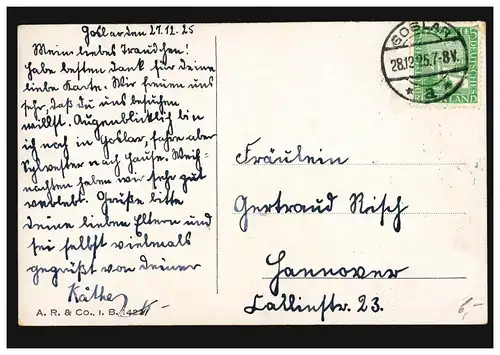 Goslar, den 27.12.25
Mein liebes Traudchen!
Habe besten Dank für deine
liebe Karte. Wir freuen uns
sehr, daß du uns besuchen
willst. Augenblicklich bin
ich noch in Goslar, fahre aber
Sylvester nach Hause. Weih-
nachten haben wir sehr gut
verlebt. Grüße bitte
deine lieben Eltern und
sei selbst vielmals
gegrüßt von deiner
Käthe
A. R. & Co., i. B.
GOSLAR
28.12.25.7-8V.
* a *
Fräulein
Gertraud Risch
Hannover
Callinstr. 23.
6,-